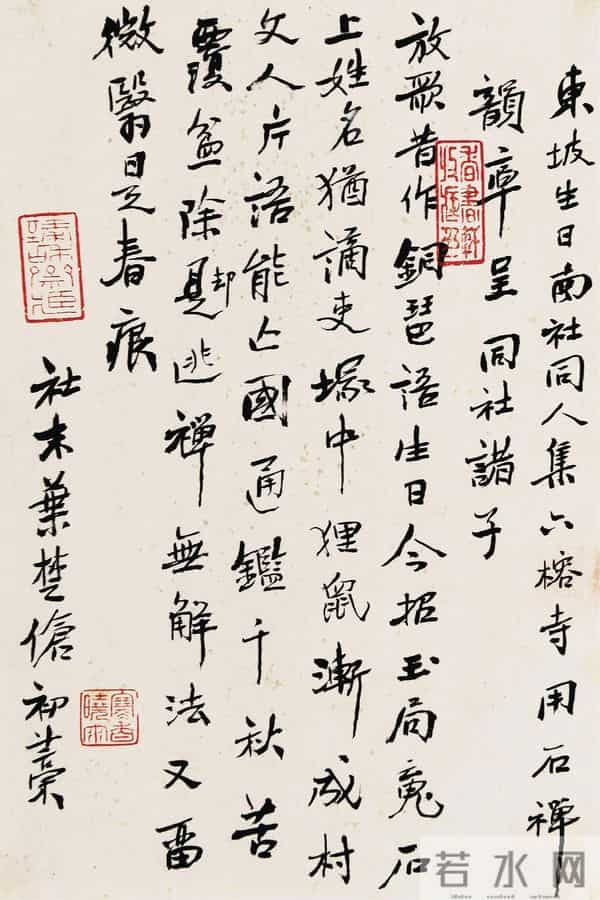 東坡生日南社同人集六榕寺用石禪
韻率呈同社諸子
放歌昔作銅琶語生日今招玉局魂石
上姓名猶誦吏塚中狸鼠漸成村
文人片語能亡國通鑑千秋苦
覆盆除却逃禪無解法又留
微翳是春痕
社末葉楚傖初藁
香書軒
收藏印
若水网